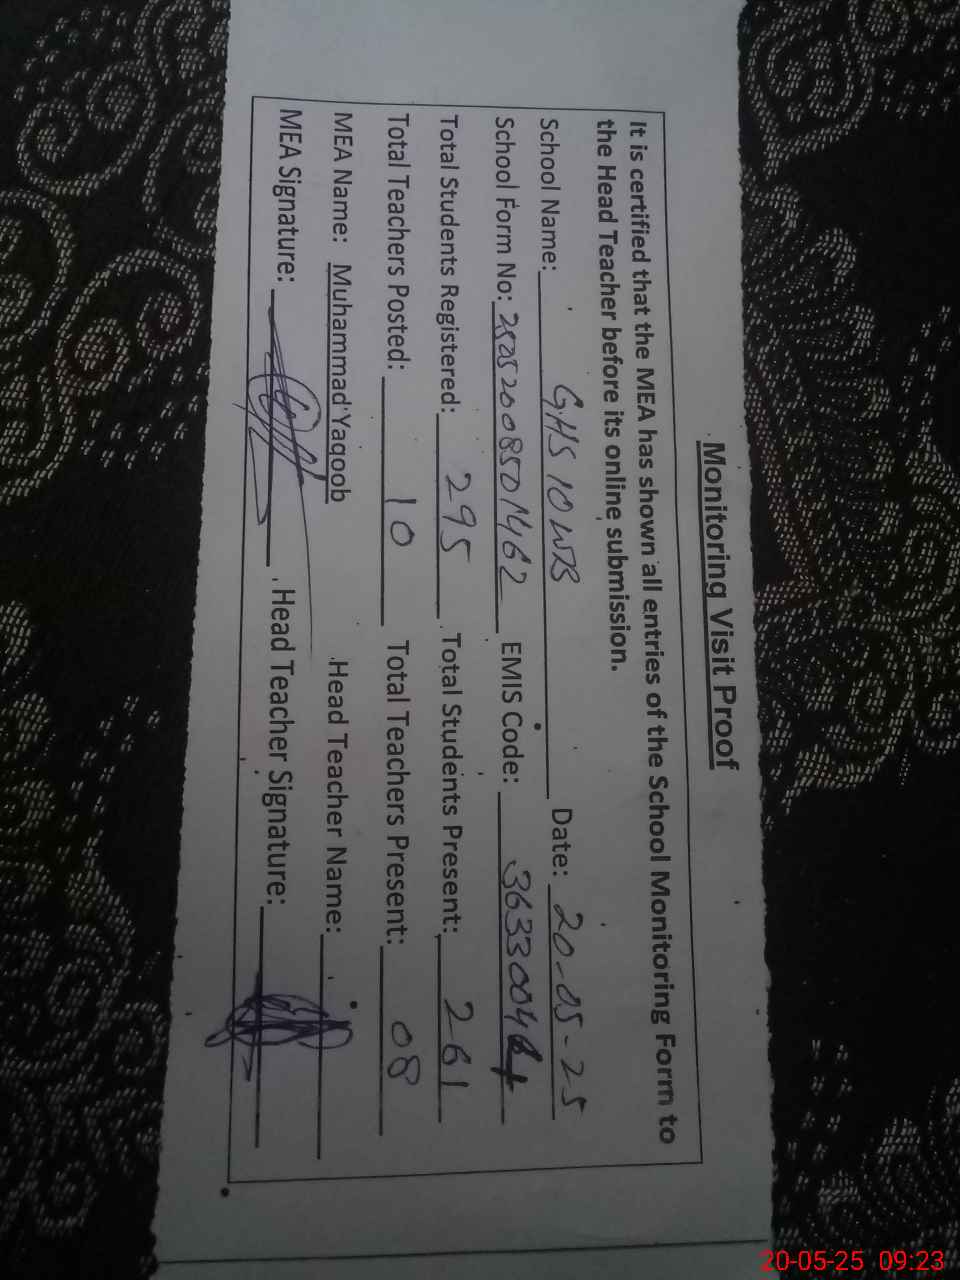 Monitoring Visit Proof
It is certified that the MEA has shown all entries of the School Monitoring Form to
the Head Teacher before its online submission.
School Name: GHS 10 WB Date: 20-05-25
School Form No: 25252008501462 EMIS Code: 3633004
Total Students Registered: 295 Total Students Present: 261
Total Teachers Posted: 10 Total Teachers Present: 08
MEA Name: Muhammad Yaqoob Head Teacher Name:
MEA Signature: Head Teacher Signature:
20-05-25 09:23